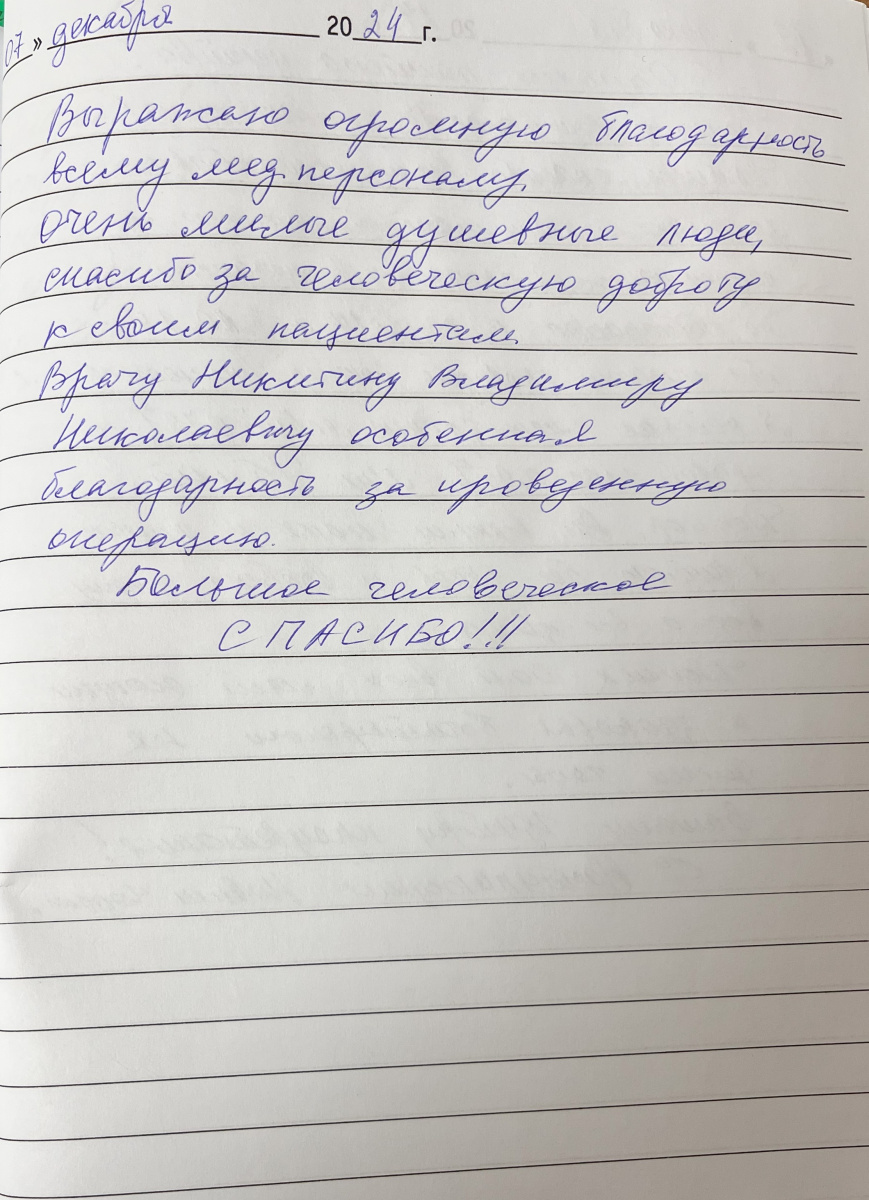 07» декабря 2024 г.
Выражаю огромную благодарность
всему мед. персоналу.
очень милые душевные люди,
спасибо за человеческую доброту
к своим пациентам.
Врачу Никитину Владимиру
Николаевичу особенная
благодарность за проведенную
операцию.
Большое человеческое
СПАСИБО!!!